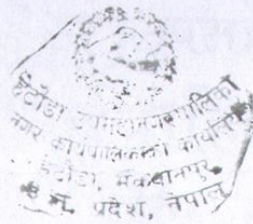 हेटौंडा उपमहानगरपालिका
नगर कार्यपालिकाको कार्यालय
हेटौंडा, मकवानपुर
३ नं. प्रदेश, नेपाल